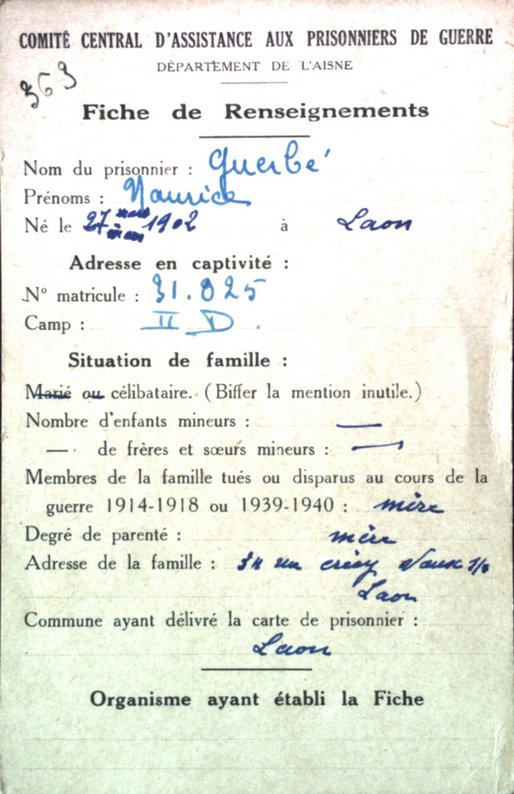 COMITÉ CENTRAL D'ASSISTANCE AUX PRISONNIERS DE GUERRE
DÉPARTEMENT DE L'AISNE
363
Fiche de Renseignements
Nom du prisonnier : Guerbé
Prénoms : Maurice
Né le 27 mars 1902 à Laon
Adresse en captivité :
N° matricule : 31.825
Camp : II D.
Situation de famille :
Marié ou célibataire. (Biffer la mention inutile.)
Nombre d'enfants mineurs : —
— de frères et sœurs mineurs : —
Membres de la famille tués ou disparus au cours de la
guerre 1914-1918 ou 1939-1940 : mère
Degré de parenté : mère
Adresse de la famille : 34 crécy Vaux s/s
Laon
Commune ayant délivré la carte de prisonnier :
Laon
Organisme ayant établi la Fiche